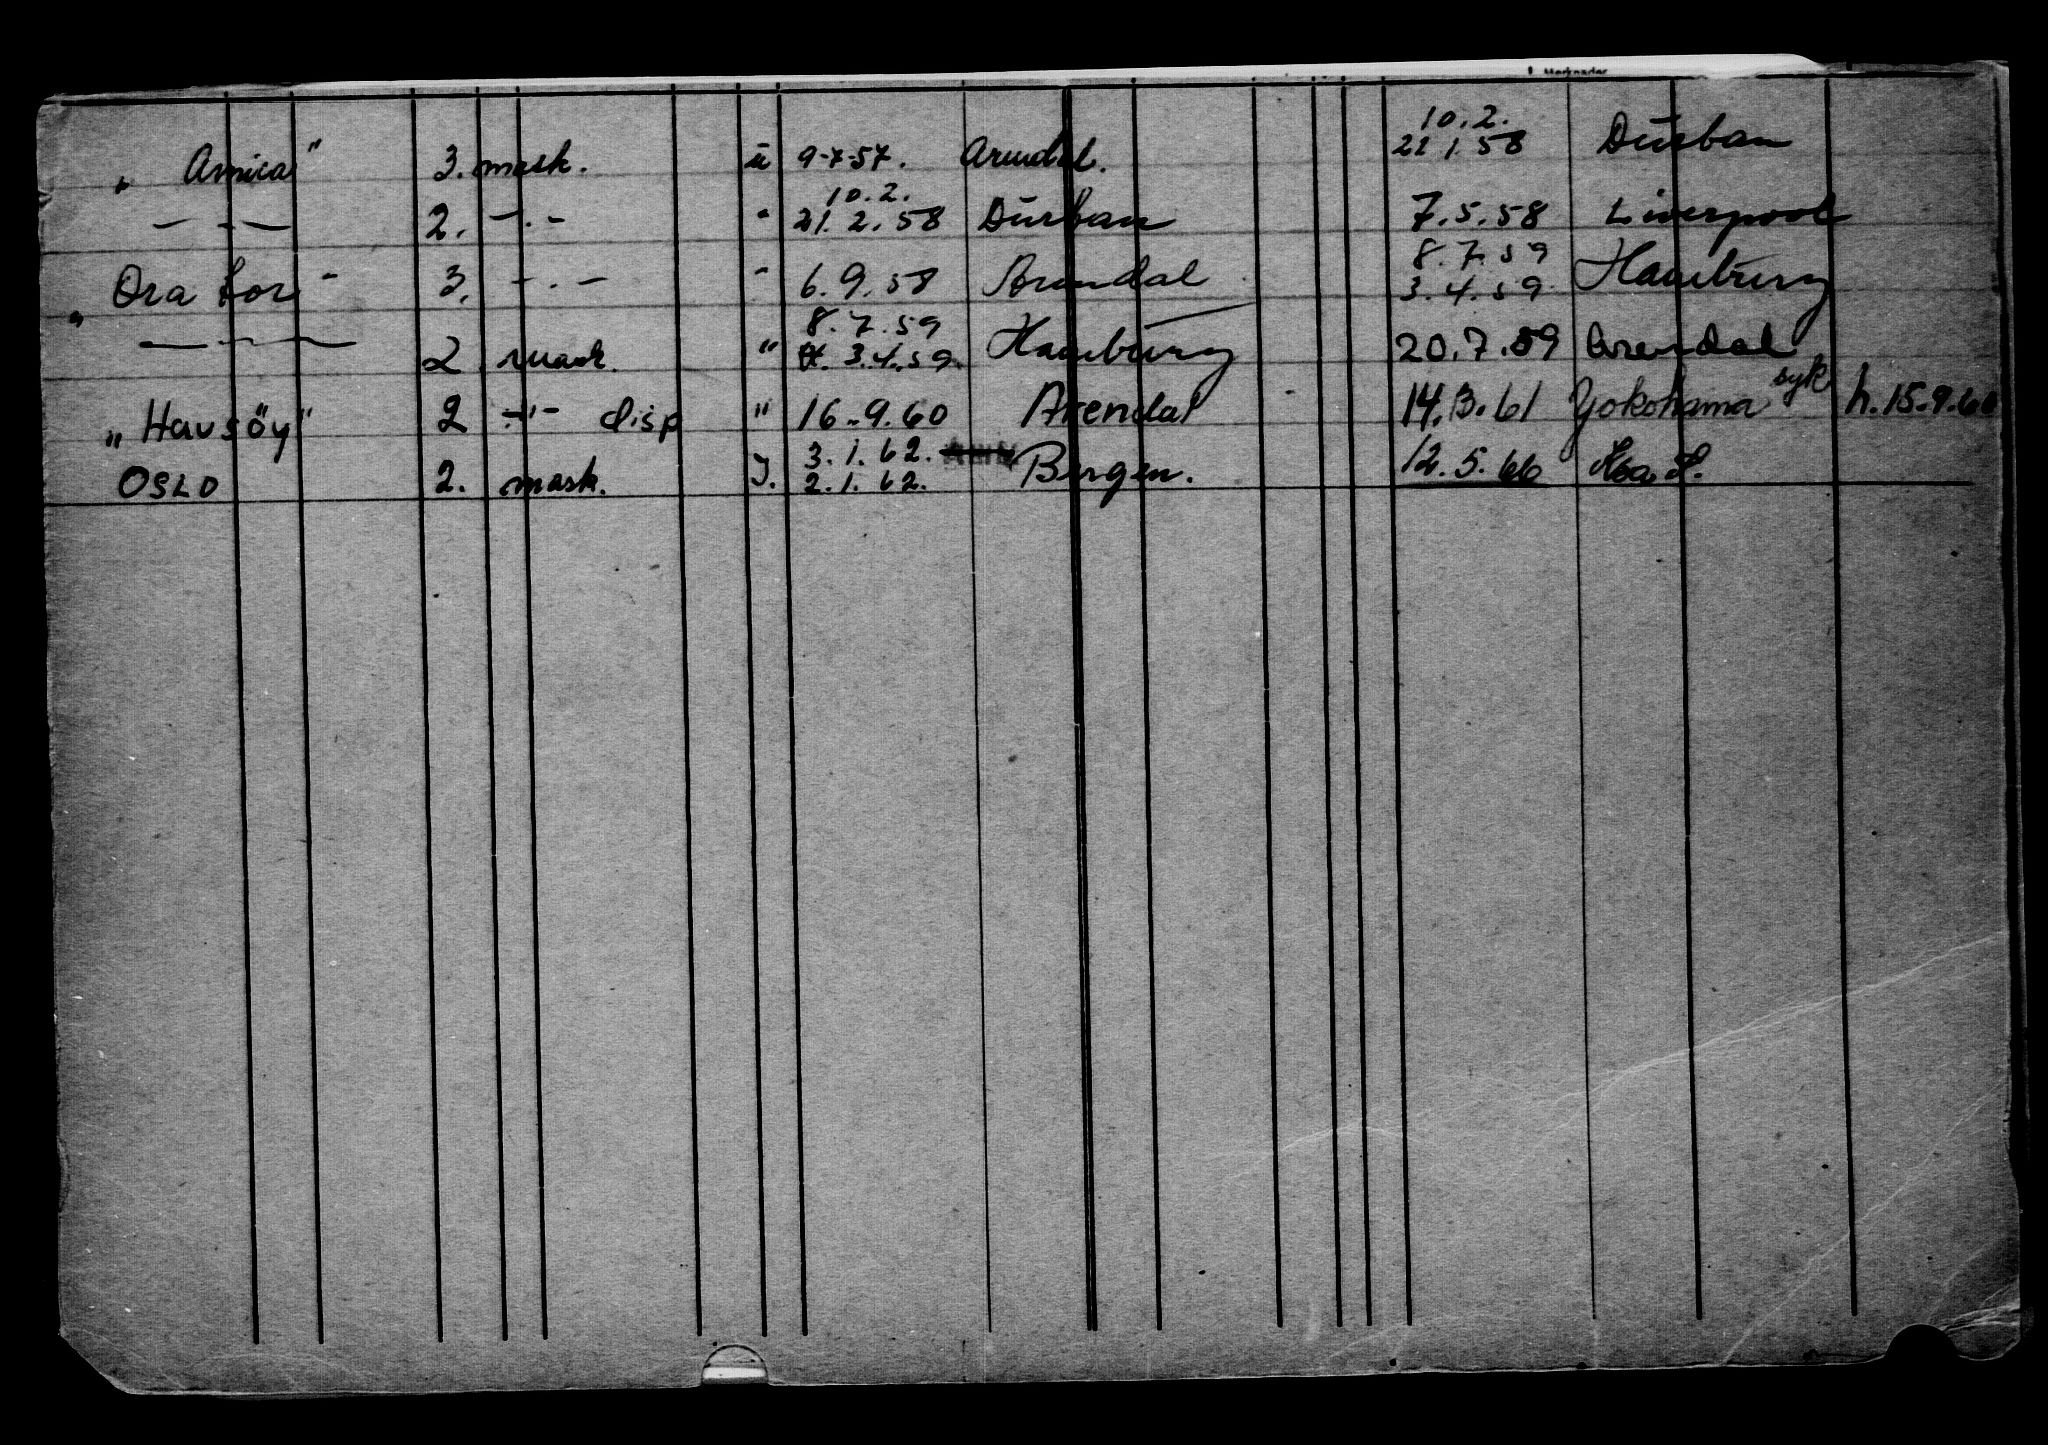 10.2.
„ Arnica" 3. mask. u 9-7-57. Arendal. 21 1.58 Durban
10.2.
— " — 2. —.— " 21.2.58 Durban 7.5.58 Liverpool
8.7.59
„ Ora 3. — . — " 6.9.58 Arendal 3.4.59 Hamburg
8.7.59
— " — 2 mask. " 3.4.59 Hamburg 20.7.59 Arendal
„ Havsöy" 2 -"- disp " 16.9.60 Arendal 14.3.61 Yokohama syk h. 15.9.60
3.1.62.
OSLO 2. mask. 2.1.62. Bergen. 12.5.66